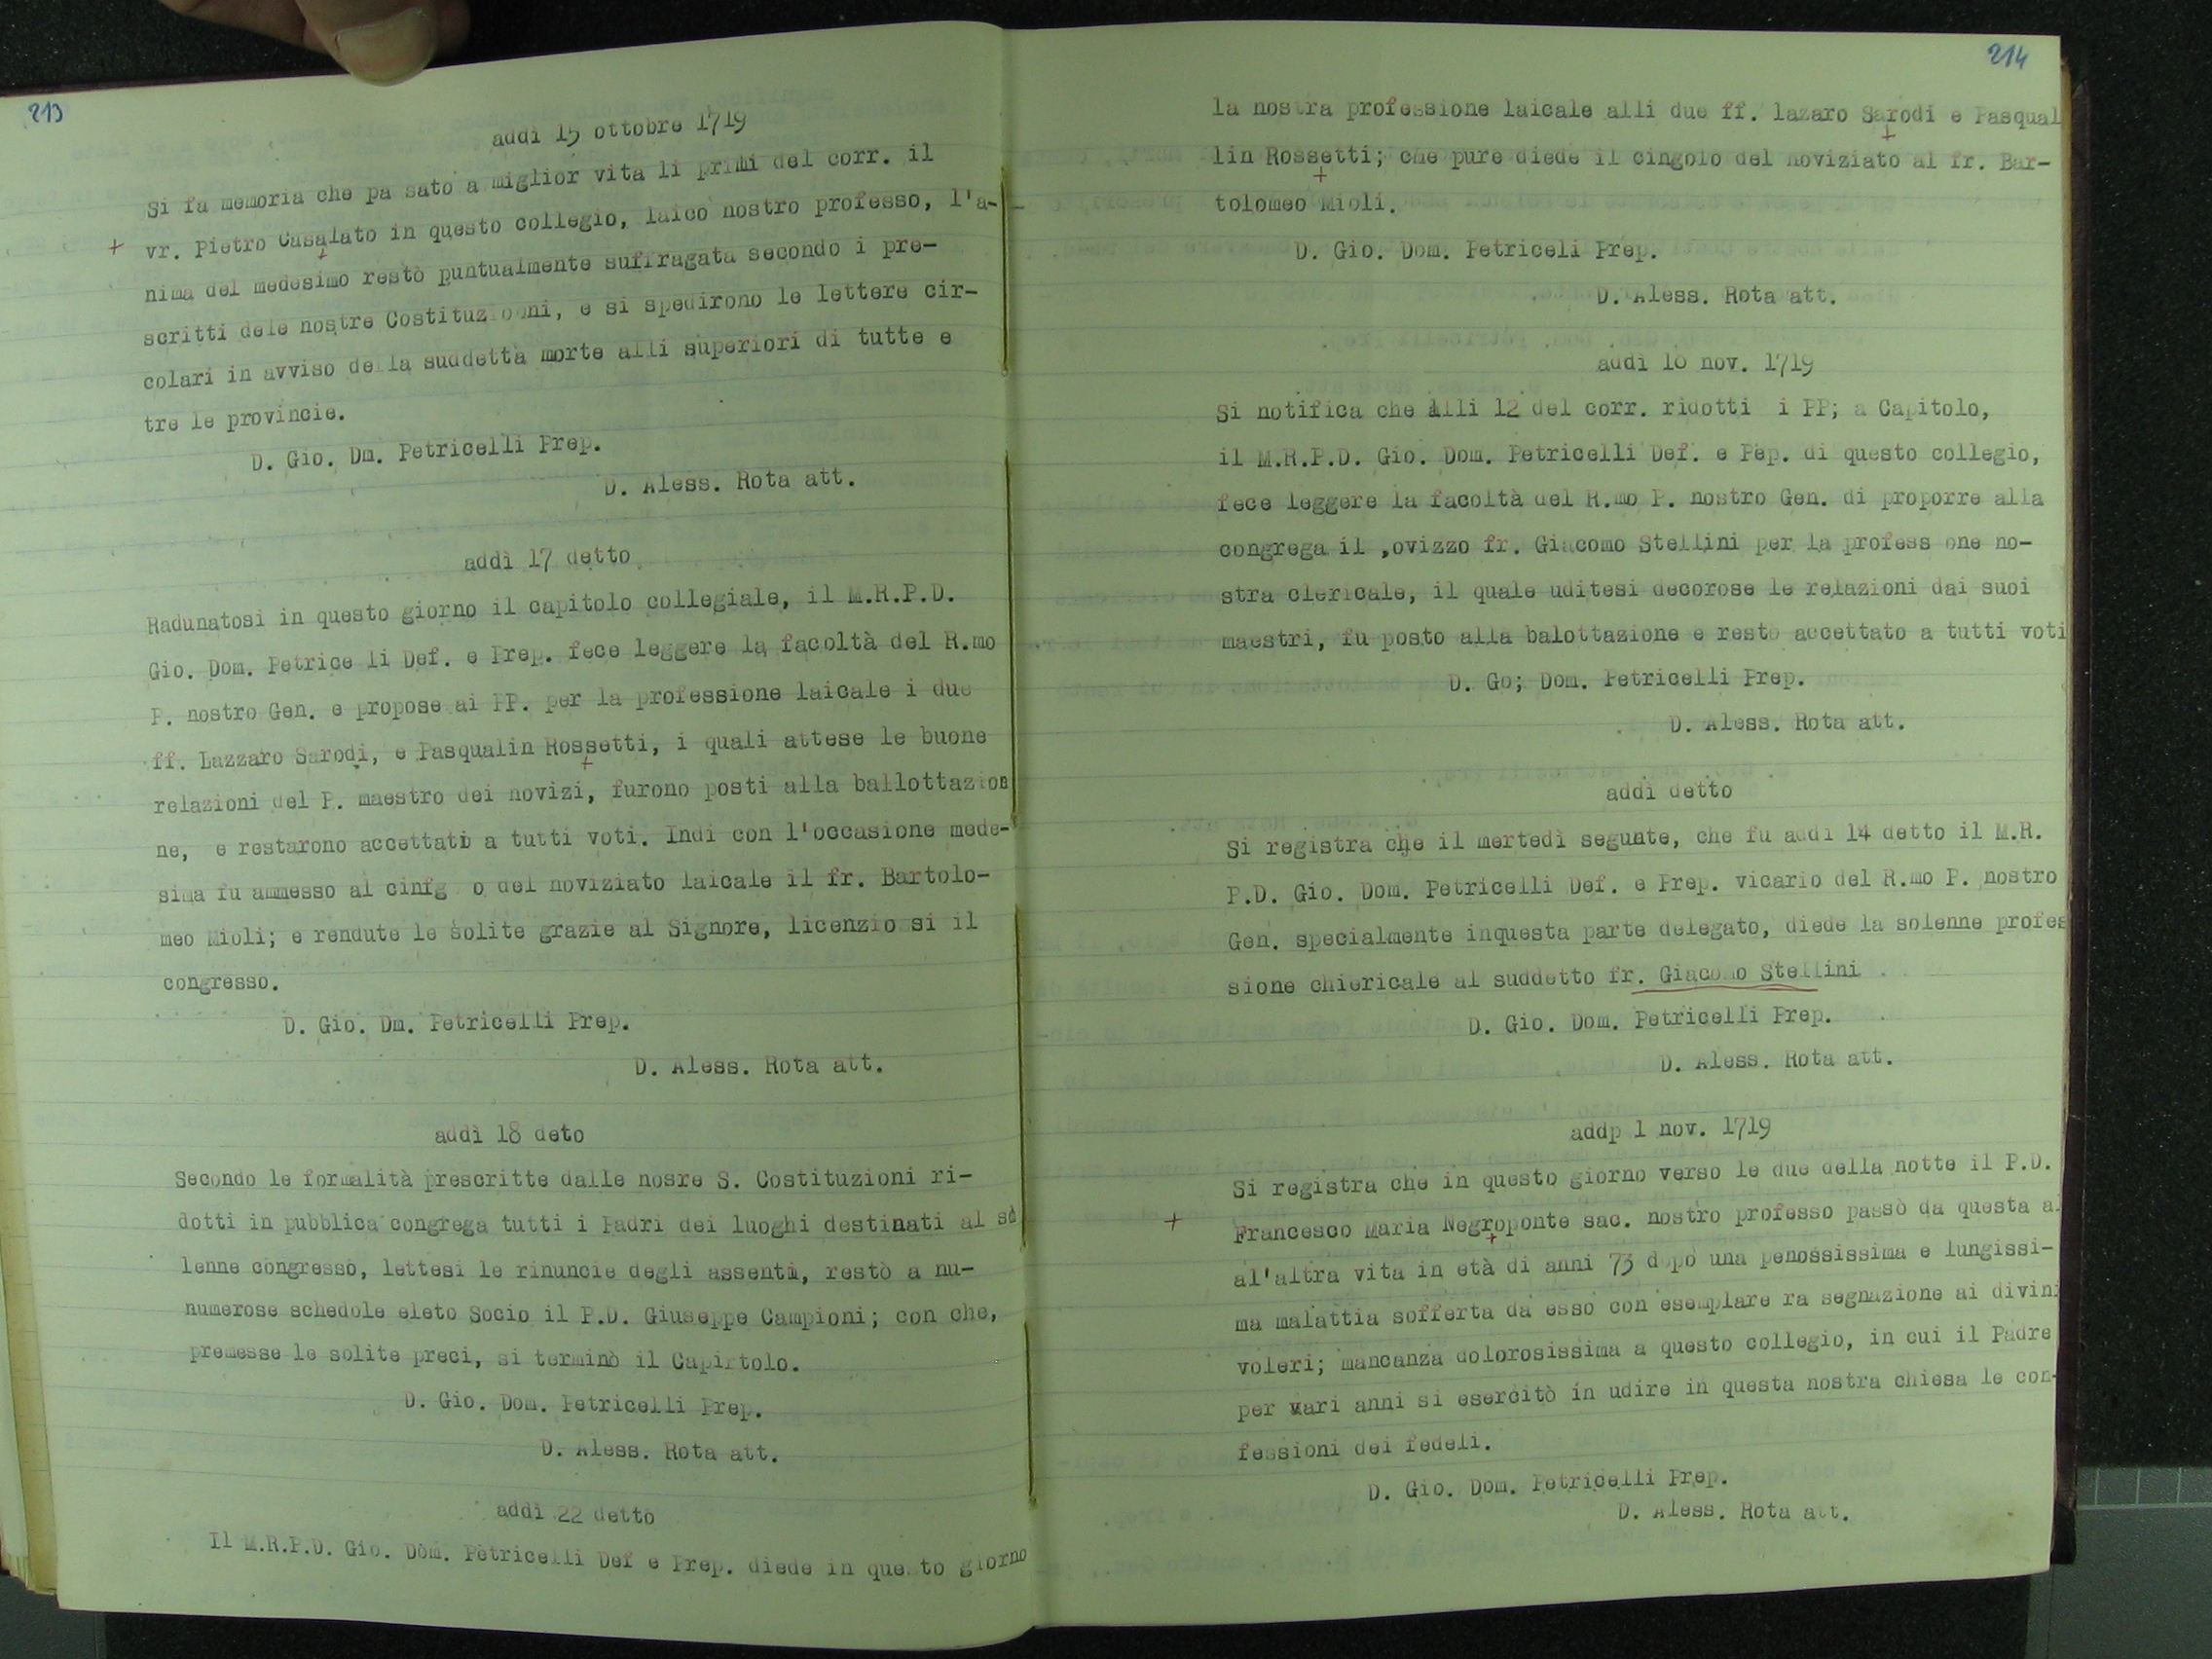 213
addì 15 ottobre 1719
Si fa memoria che pa sato a miglior vita li primi del corr. il
+ vr. Pietro Casalato in questo collegio, laico nostro professo, l'a-
nima del medesimo restò puntualmente suffragata secondo i pre-
scritti dele nostre Costituzioni, e si spedirono le lettere cir-
colari in avviso della suddetta morte alli superiori di tutte e
tre le provincie.
D. Gio. Dm. Petricelli Prep.
D. Aless. Rota att.
addì 17 detto
Radunatosi in questo giorno il capitolo collegiale, il M.R.P.D.
Gio. Dom. Petrice li Def. e Prep. fece leggere la facoltà del R.mo
P. nostro Gen. e propose ai PP. per la professione laicale i due
ff. Lazzaro Sarodi, e Pasqualin Rossetti, i quali attese le buone
relazioni del P. maestro dei novizi, furono posti alla ballottazion
ne, e restarono accettati a tutti voti. Indi con l'occasione mede-
sima fu ammesso al cinfg o del noviziato laicale il fr. Bartolo-
meo Mioli; e rendute le solite grazie al Signore, licenziossi il
congresso.
D. Gio. Dm. Petricelli Prep.
D. Aless. Rota att.
addì 18 deto
Secondo le formalità prescritte dalle nosre S. Costituzioni ri-
dotti in pubblica congrega tutti i Padri dei luoghi destinati al sò
lenne congresso, lettesi le rinuncie degli assenti, restò a nu-
numerose schedole eleto Socio il P.D. Giuseppe Campioni; con che,
premesse le solite preci, si terminò il Capirtolo.
D. Gio. Dom. Petricelli Prep.
D. Aless. Rota att.
addì 22 detto
Il M.R.P.D. Gio. Dom. Petricelli Def e Prep. diede in questo giorno
214
la nostra professione laicale alli due ff. lazaro Sarodi e Pasqual
lin Rossetti; che pure diede il cingolo del noviziato al fr. Bar-
tolomeo Mioli.
D. Gio. Dom. Petriceli Prep.
D. Aless. Rota att.
addì 18 nov. 1719
Si notifica che alli 12 del corr. ridotti i PP; a Capitolo,
il M.R.P.D. Gio. Dom. Petricelli Def. e Pep. di questo collegio,
fece leggere la facoltà del R.mo P. nostro Gen. di proporre alla
congrega il ,ovizzo fr. Giacomo Stellini per la profess one no-
stra clericale, il quale uditesi decorose le relazioni dai suoi
maestri, fu posto alla balottazione e resto accettato a tutti voti
D. Go; Dom. Petricelli Prep.
D. Aless. Rota att.
addì detto
Si registra che il mertedì segunte, che fu addì 14 detto il M.R.
P.D. Gio. Dom. Petricelli Def. e Prep. vicario del R.mo P. nostro
Gen. specialmente inquesta parte delegato, diede la solenne profes
sione chiericale al suddetto fr. Giacomo Stellini
D. Gio. Dom. Petricelli Prep.
D. Aless. Rota att.
addp 1 nov. 1719
Si registra che in questo giorno verso le due della notte il P.D.
+ Francesco Maria Negroponte sac. nostro professo passò da questa al
al'altra vita in età di anni 73 dopo una penossissima e lungissi-
ma malattia sofferta da esso con esemplare ra segnazione ai divini
voleri; mancanza dolorosissima a questo collegio, in cui il Padre
per vari anni si esercitò in udire in questa nostra chiesa le con-
fessioni dei fedeli.
D. Gio. Dom. Petricelli Prep.
D. Aless. Rota att.